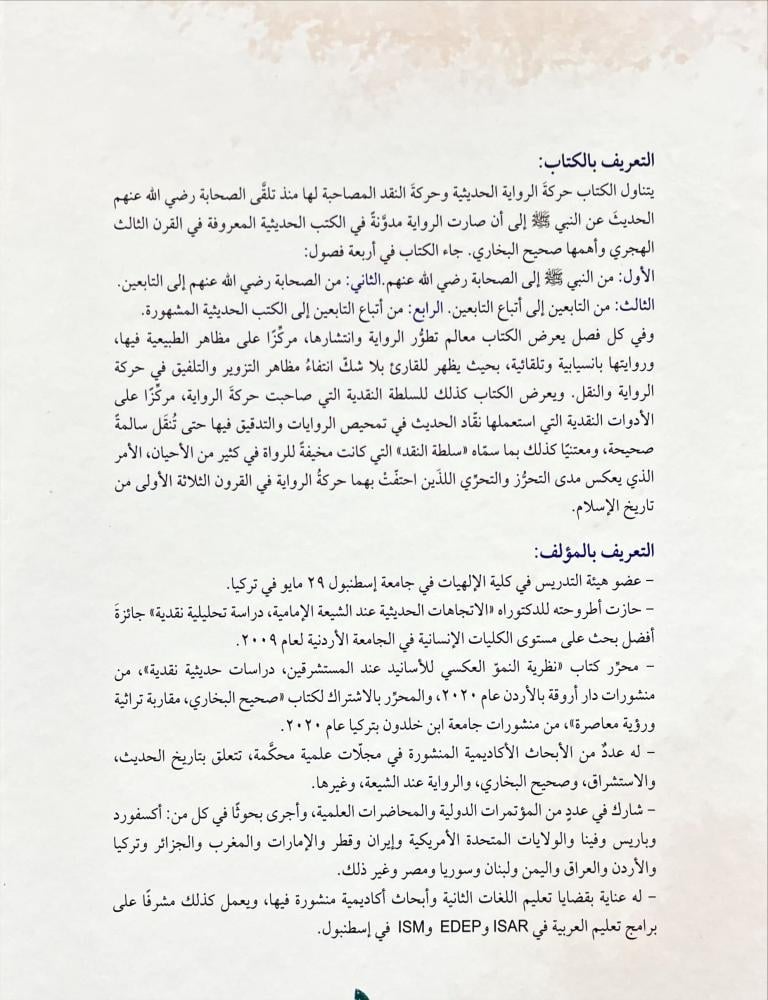 التعريف بالكتاب:
يتناول الكتاب حركةَ الرواية الحديثية وحركةَ النقد المصاحبة لها منذ تلقَّى الصحابة رضي الله عنهم
الحديثَ عن النبي ﷺ إلى أن صارت الرواية مدوَّنةً في الكتب الحديثية المعروفة في القرن الثالث
الهجري وأهمها صحيح البخاري. جاء الكتاب في أربعة فصول:
الأول: من النبي ﷺ إلى الصحابة رضي الله عنهم.الثاني: من الصحابة رضي الله عنهم إلى التابعين.
الثالث: من التابعين إلى أتباع التابعين. الرابع: من أتباع التابعين إلى الكتب الحديثية المشهورة.
وفي كل فصل يعرض الكتاب معالم تطوُّر الرواية وانتشارها، مركِّزًا على مظاهر الطبيعية فيها،
وروايتها بانسيابية وتلقائية، بحيث يظهر للقارئ بلا شكّ انتفاءُ مظاهر التزوير والتلفيق في حركة
الرواية والنقل. ويعرض الكتاب كذلك للسلطة النقدية التي صاحبت حركةَ الرواية، مركِّزًا على
الأدوات النقدية التي استعملها نقّاد الحديث في تمحيص الروايات والتدقيق فيها حتى تُنقَل سالمةً
صحيحة، ومعتنيًا كذلك بما سمّاه «سلطة النقد» التي كانت مخيفةً للرواة في كثير من الأحيان، الأمر
الذي يعكس مدى التحرُّز والتحرِّي اللذَين احتفّتْ بهما حركةُ الرواية في القرون الثلاثة الأولى من
تاريخ الإسلام.
التعريف بالمؤلف:
– عضو هيئة التدريس في كلية الإلهيات في جامعة إسطنبول ٢٩ مايو في تركيا.
– حازت أطروحته للدكتوراه «الاتجاهات الحديثية عند الشيعة الإمامية، دراسة تحليلية نقدية» جائزةَ
أفضل بحث على مستوى الكليات الإنسانية في الجامعة الأردنية لعام ٢٠٠٩.
– محرِّر كتاب «نظرية النموّ العكسي للأسانيد عند المستشرقين، دراسات حديثية نقدية»، من
منشورات دار أروقة بالأردن عام ٢٠٢٠، والمحرِّر بالاشتراك لكتاب «صحيح البخاري، مقاربة تراثية
ورؤية معاصرة»، من منشورات جامعة ابن خلدون بتركيا عام ٢٠٢٠.
– له عددٌ من الأبحاث الأكاديمية المنشورة في مجلّات علمية محكَّمة، تتعلق بتاريخ الحديث،
والاستشراق، وصحيح البخاري، والرواية عند الشيعة، وغيرها.
– شارك في عددٍ من المؤتمرات الدولية والمحاضرات العلمية، وأجرى بحوثًا في كل من: أكسفورد
وباريس وفينا والولايات المتحدة الأمريكية وإيران وقطر والإمارات والمغرب والجزائر وتركيا
والأردن والعراق واليمن ولبنان وسوريا ومصر وغير ذلك.
– له عناية بقضايا تعليم اللغات الثانية وأبحاث أكاديمية منشورة فيها، ويعمل كذلك مشرفًا على
برامج تعليم العربية في ISAR وEDEP وISM في إسطنبول.